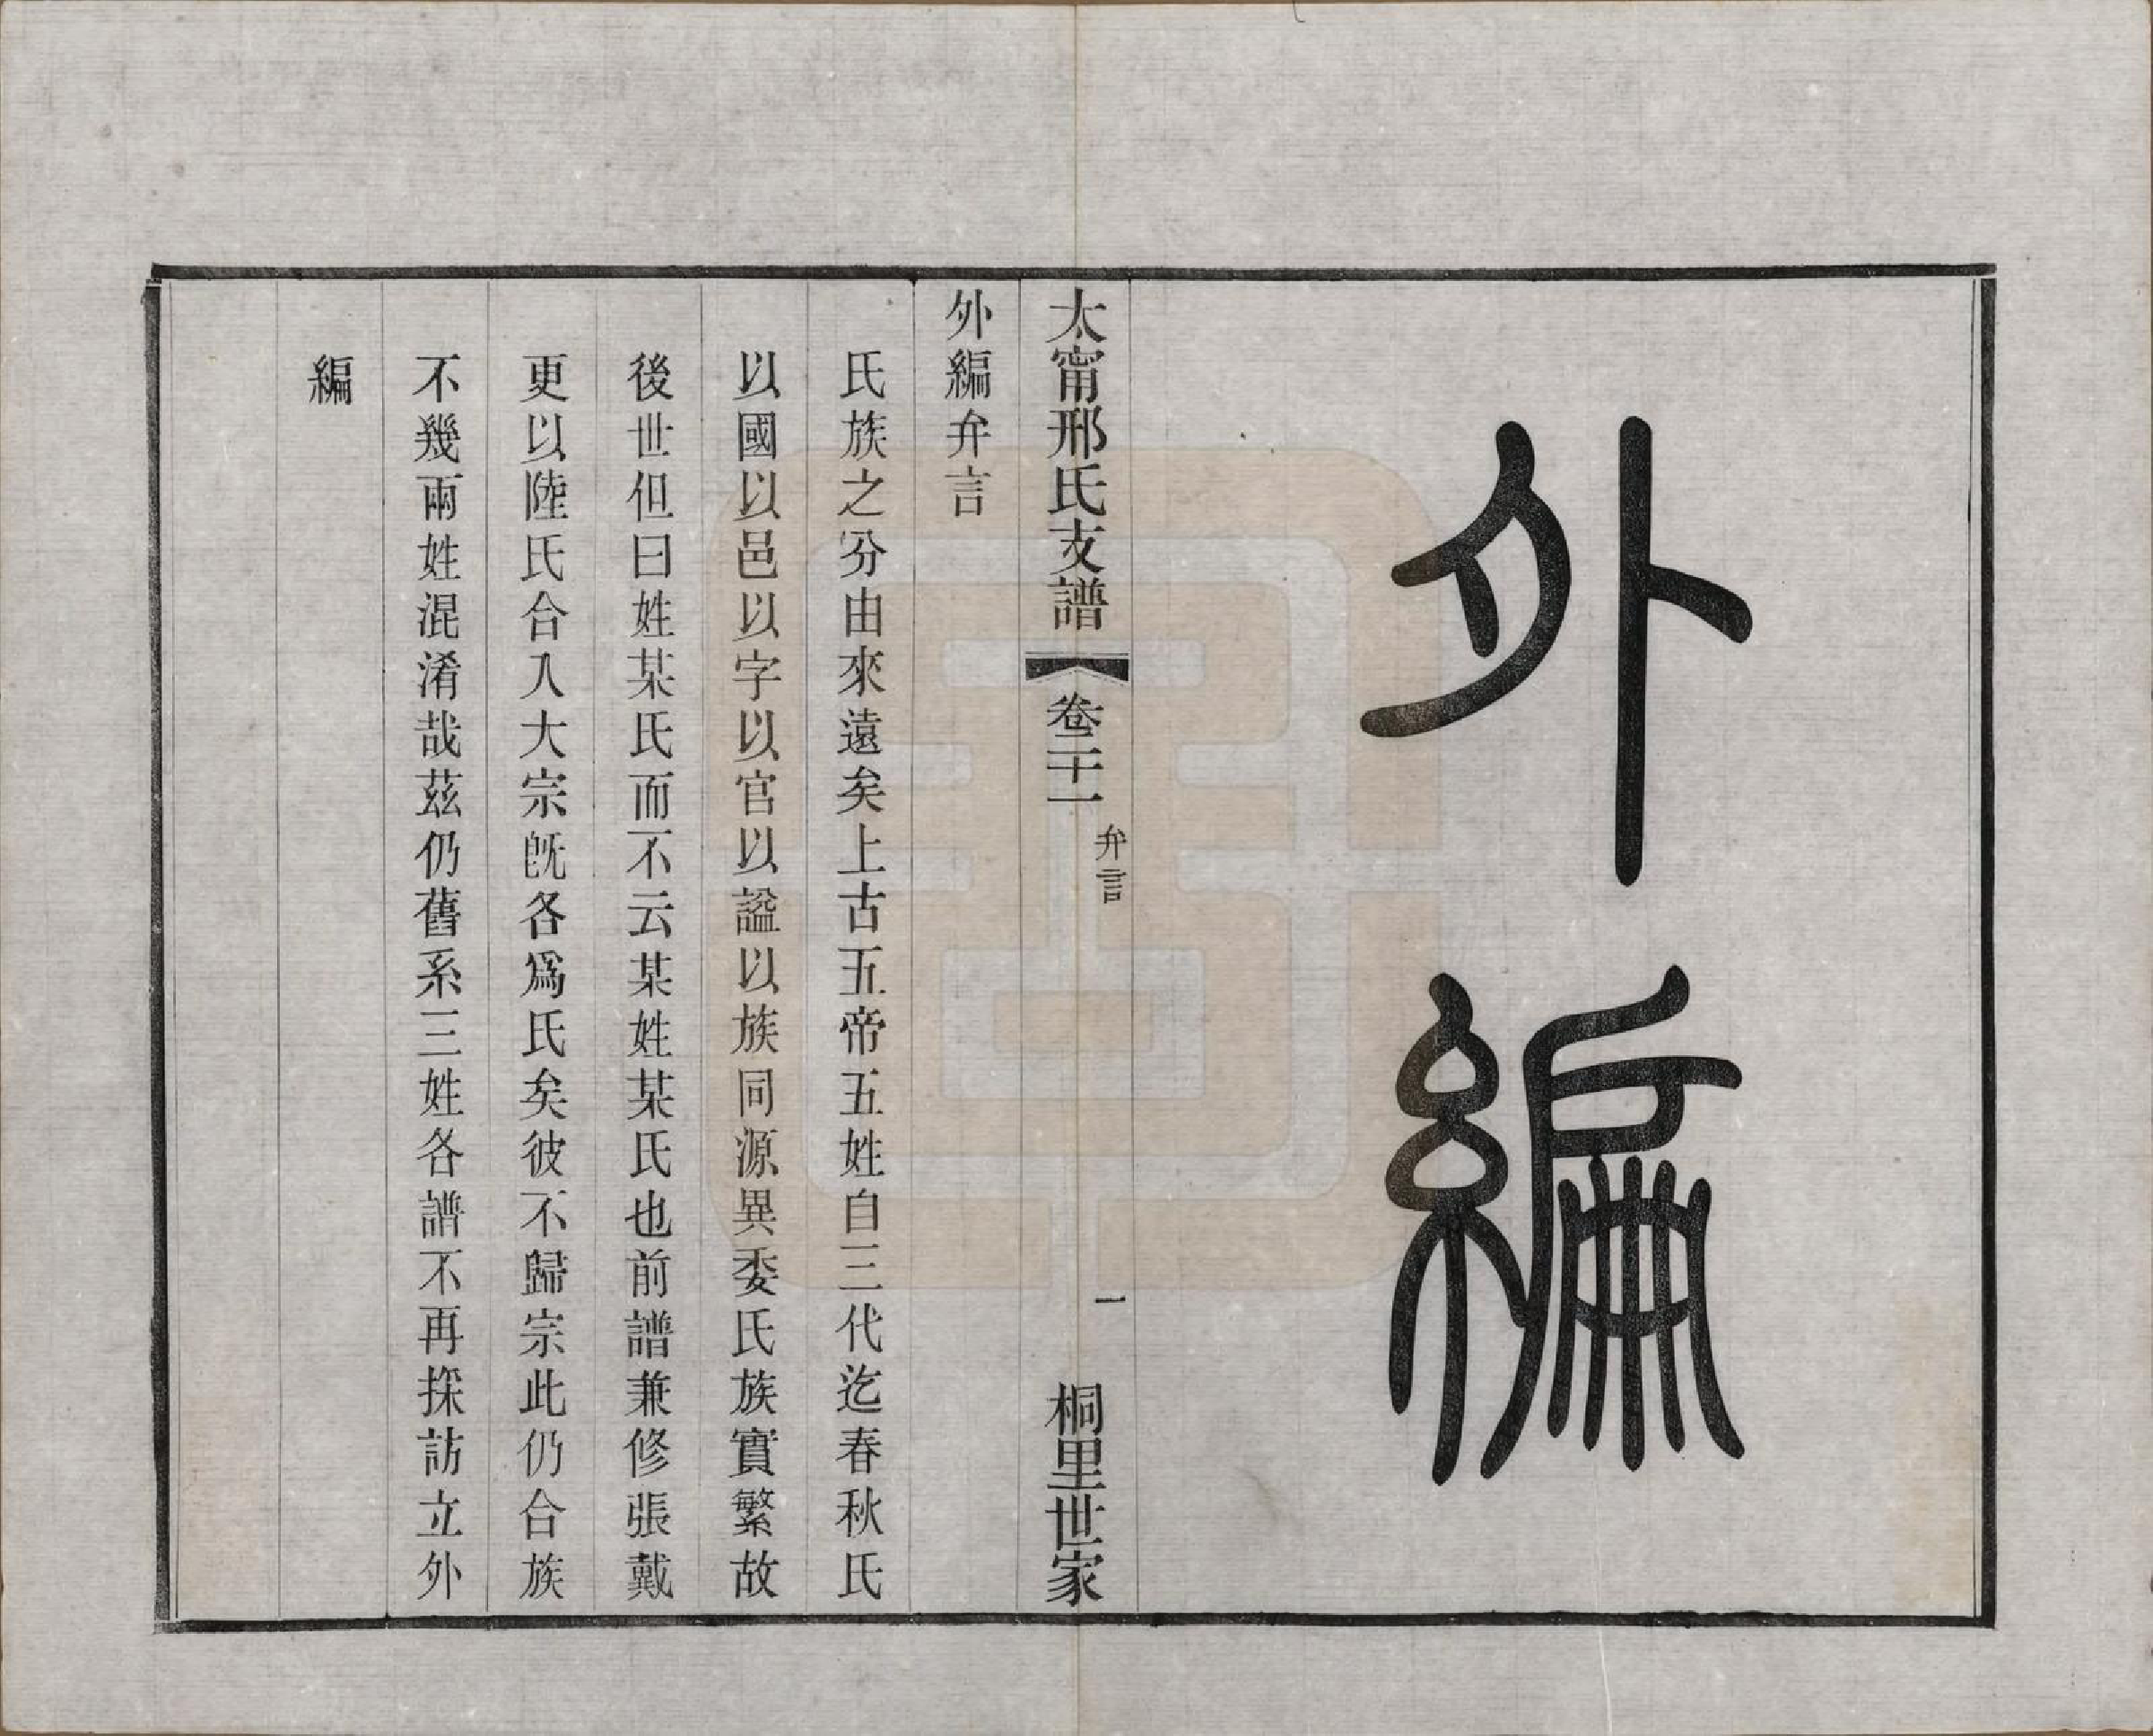 外編
太甯邢氏支譜
卷二十一
弁言
一
桐里世家
外編弁言
氏族之分由來遠矣上古五帝五姓自三代迄春秋氏
以國以邑以字以官以謚以族同源異委氏族實繁故
後世但曰姓某氏而不云某姓某氏也前譜兼修張戴
更以陸氏合入大宗旣各爲氏矣彼不歸宗此仍合族
不幾兩姓混淆哉茲仍舊系三姓各譜不再採訪立外
編